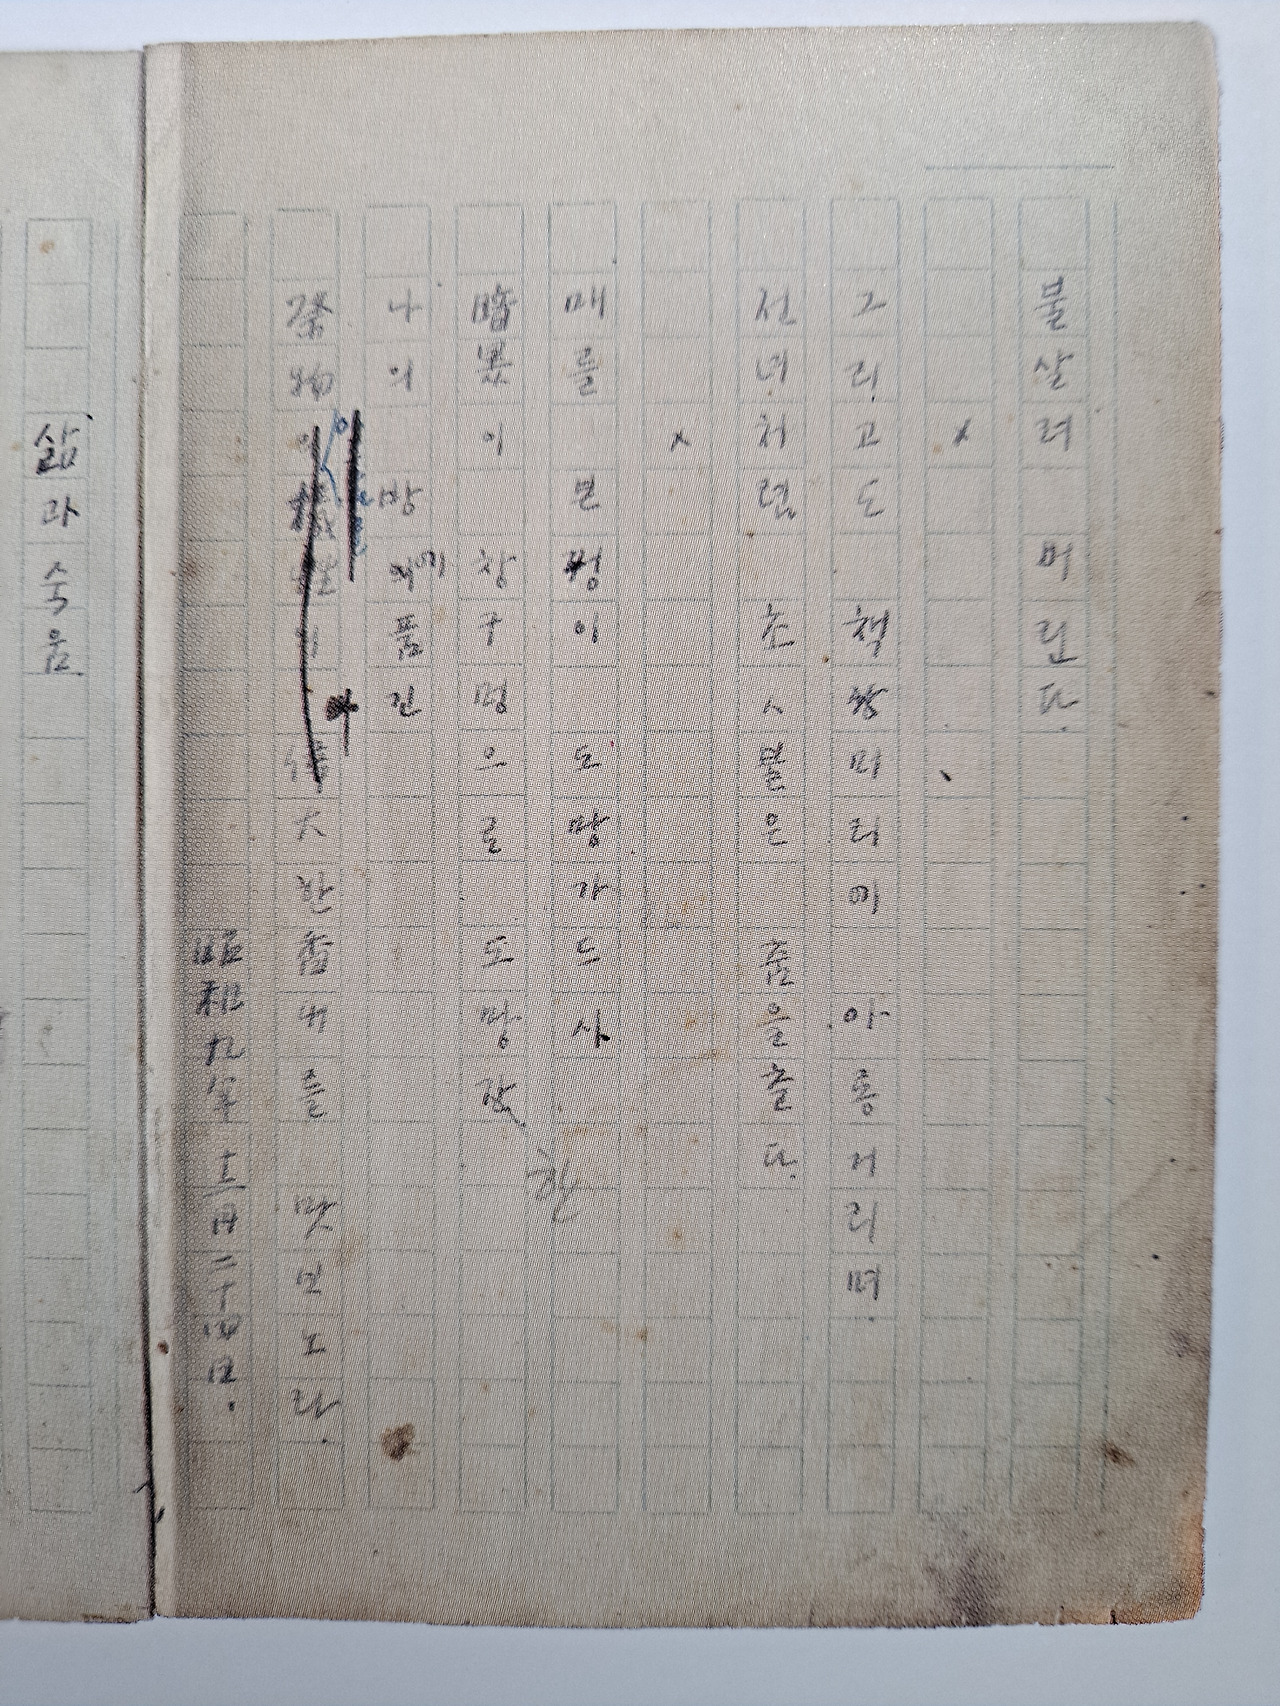 불살려 버린다.
×
그리고도 책상머리에 아롱거리며
선녀처럼 초ㅅ불은 춤을춘다.
×
매를 본 꿩이 도망가드시
暗黑이 창구멍으로 도망간
한
나의 방에품긴
祭物의
偉大한香내를 맛보노라.
昭和九年十二月二十四日.
삶과 죽음